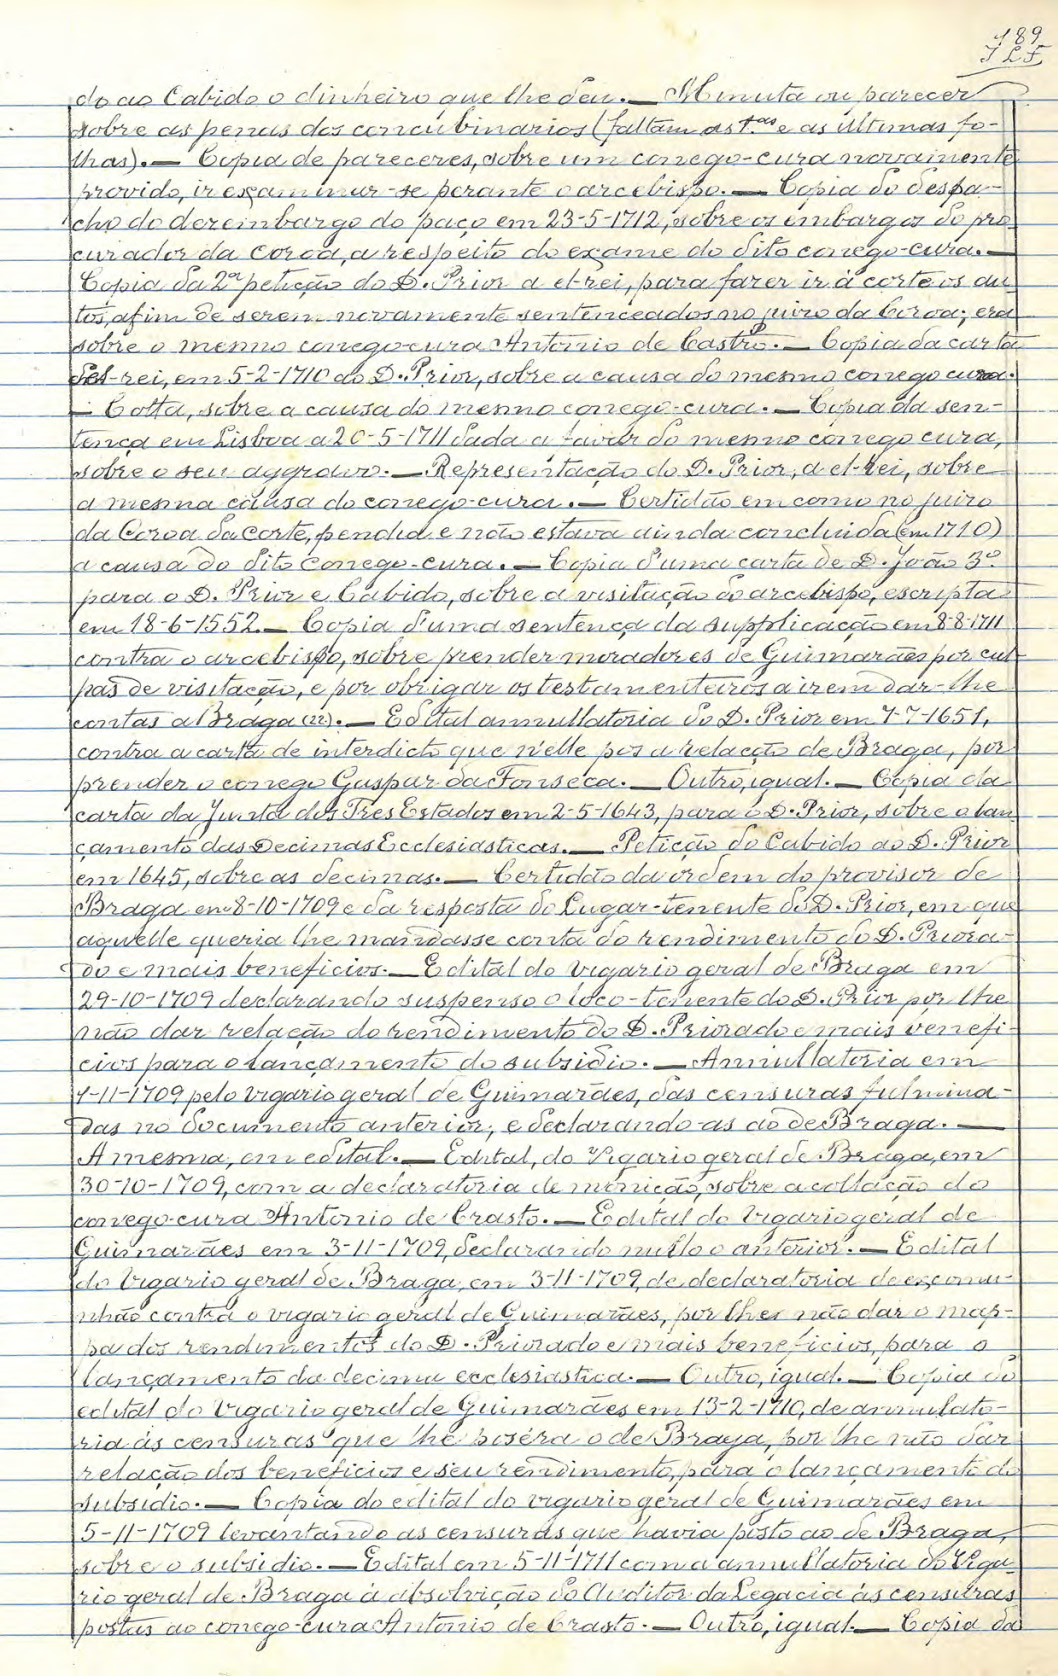 189
J L F
do ao Cabido o dinheiro que lhe deu. — Minuta ou parecer
sobre as penas dos concubinarios (faltam as 1.as e as últimas fo-
lhas). — Copia de pareceres, sobre um conego-cura novamente
provido, ir examinar-se perante o arcebispo. — Copia do despa-
cho do dezembargo do paço em 23-5-1712, sobre os embargos do pro
curador da coroa, a respeito do exame do dito conego-cura. —
Copia da 2ª petição do D. Prior a el-rei, para fazer ir á corte os au
tos, afim de serem novamente sentenceados no juizo da Coroa; era
sobre o mesmo conego-cura Antonio de Castro. — Copia da carta
del-rei, em 5-2-1710 ao D. Prior, sobre a causa do mesmo conego cura.
— Cotta, sobre a causa do mesmo conego-cura. — Copia da sen-
tença em Lisboa a 20-5-1711 dada a favor do mesmo conego cura,
sobre o seu aggravo. — Representação do D. Prior, a el-rei, sobre
a mesma causa do conego-cura. — Certidão em como no juizo
da Coroa da corte, pendia e não estava ainda concluida (em 1710)
a causa do dito conego-cura. — Copia d'uma carta de D. João 3º
para o D. Prior e Cabido, sobre a visitação do arcebispo, escripta
em 18-6-1552. — Copia d'uma sentença da supplicação em 8-8-1711
contra o arcebispo, sobre prender moradores de Guimarães por cul
pas de visitação, e por obrigar os testamenteiros a irem dar-lhe
contas a Braga (22). — Edital annullatoria do D. Prior em 7-7-1651,
contra a carta de interdicto que n'elle pos a relacção de Braga, por
prender o conego Gaspar da Fonseca. — Outro, igual. — Copia da
carta da Junta dos Tres Estados em 2-5-1643, para o D. Prior, sobre o lan
çamento das Decimas Ecclesiasticas. — Petição do Cabido ao D. Prior
em 1645, sobre as decimas. — Certidão da ordem do provisor de
Braga em 8-10-1709 e da resposta do Lugar-tenente do D. Prior, em que
aquelle queria lhe mandasse conta do rendimento do D. Priora-
do e mais beneficios. — Edital do vigario geral de Braga em
29-10-1709 declarando suspenso o loco-tenente do D. Prior por lhe
não dar relação do rendimento do D. Priorado e mais benefi-
cios para o lançamento do subsidio. — Annullatoria em
1-11-1709 pelo vigario geral de Guimarães, das censuras fulmina-
das no documento anterior, e declarando-as ao de Braga. —
A mesma, em edital. — Edital, do Vigario geral de Braga, em
30-10-1709, com a declaratoria de monição, sobre a collação do
conego-cura Antonio de Crasto. — Edital do Vigario geral de
Guimarães em 3-11-1709, declarando nullo o anterior. — Edital
do Vigario geral de Braga, em 3-11-1709, de declaratoria de excomu-
nhão contra o vigario geral de Guimarães, por lhe não dar o map-
pa dos rendimentos do D. Priorado e mais beneficios, para o
lançamento da decima ecclesiastica. — Outro, igual. — Copia do
edital do Vigario geral de Guimarães em 13-2-1710, de annulato-
ria ás censuras que lhe poséra o de Braga, por lhe não dar
relação dos beneficios e seu rendimento, para o lançamento do
subsidio. — Copia do edital do vigario geral de Guimarães em
5-11-1709 levantando as censuras que havia posto ao de Braga,
sobre o subsidio. — Edital em 5-11-1711 com a annullatoria do Viga
rio geral de Braga á absolvição do Auditor da Legacia ás censuras
postas ao conego-cura Antonio de Crasto. — Outro, igual. — Copia da